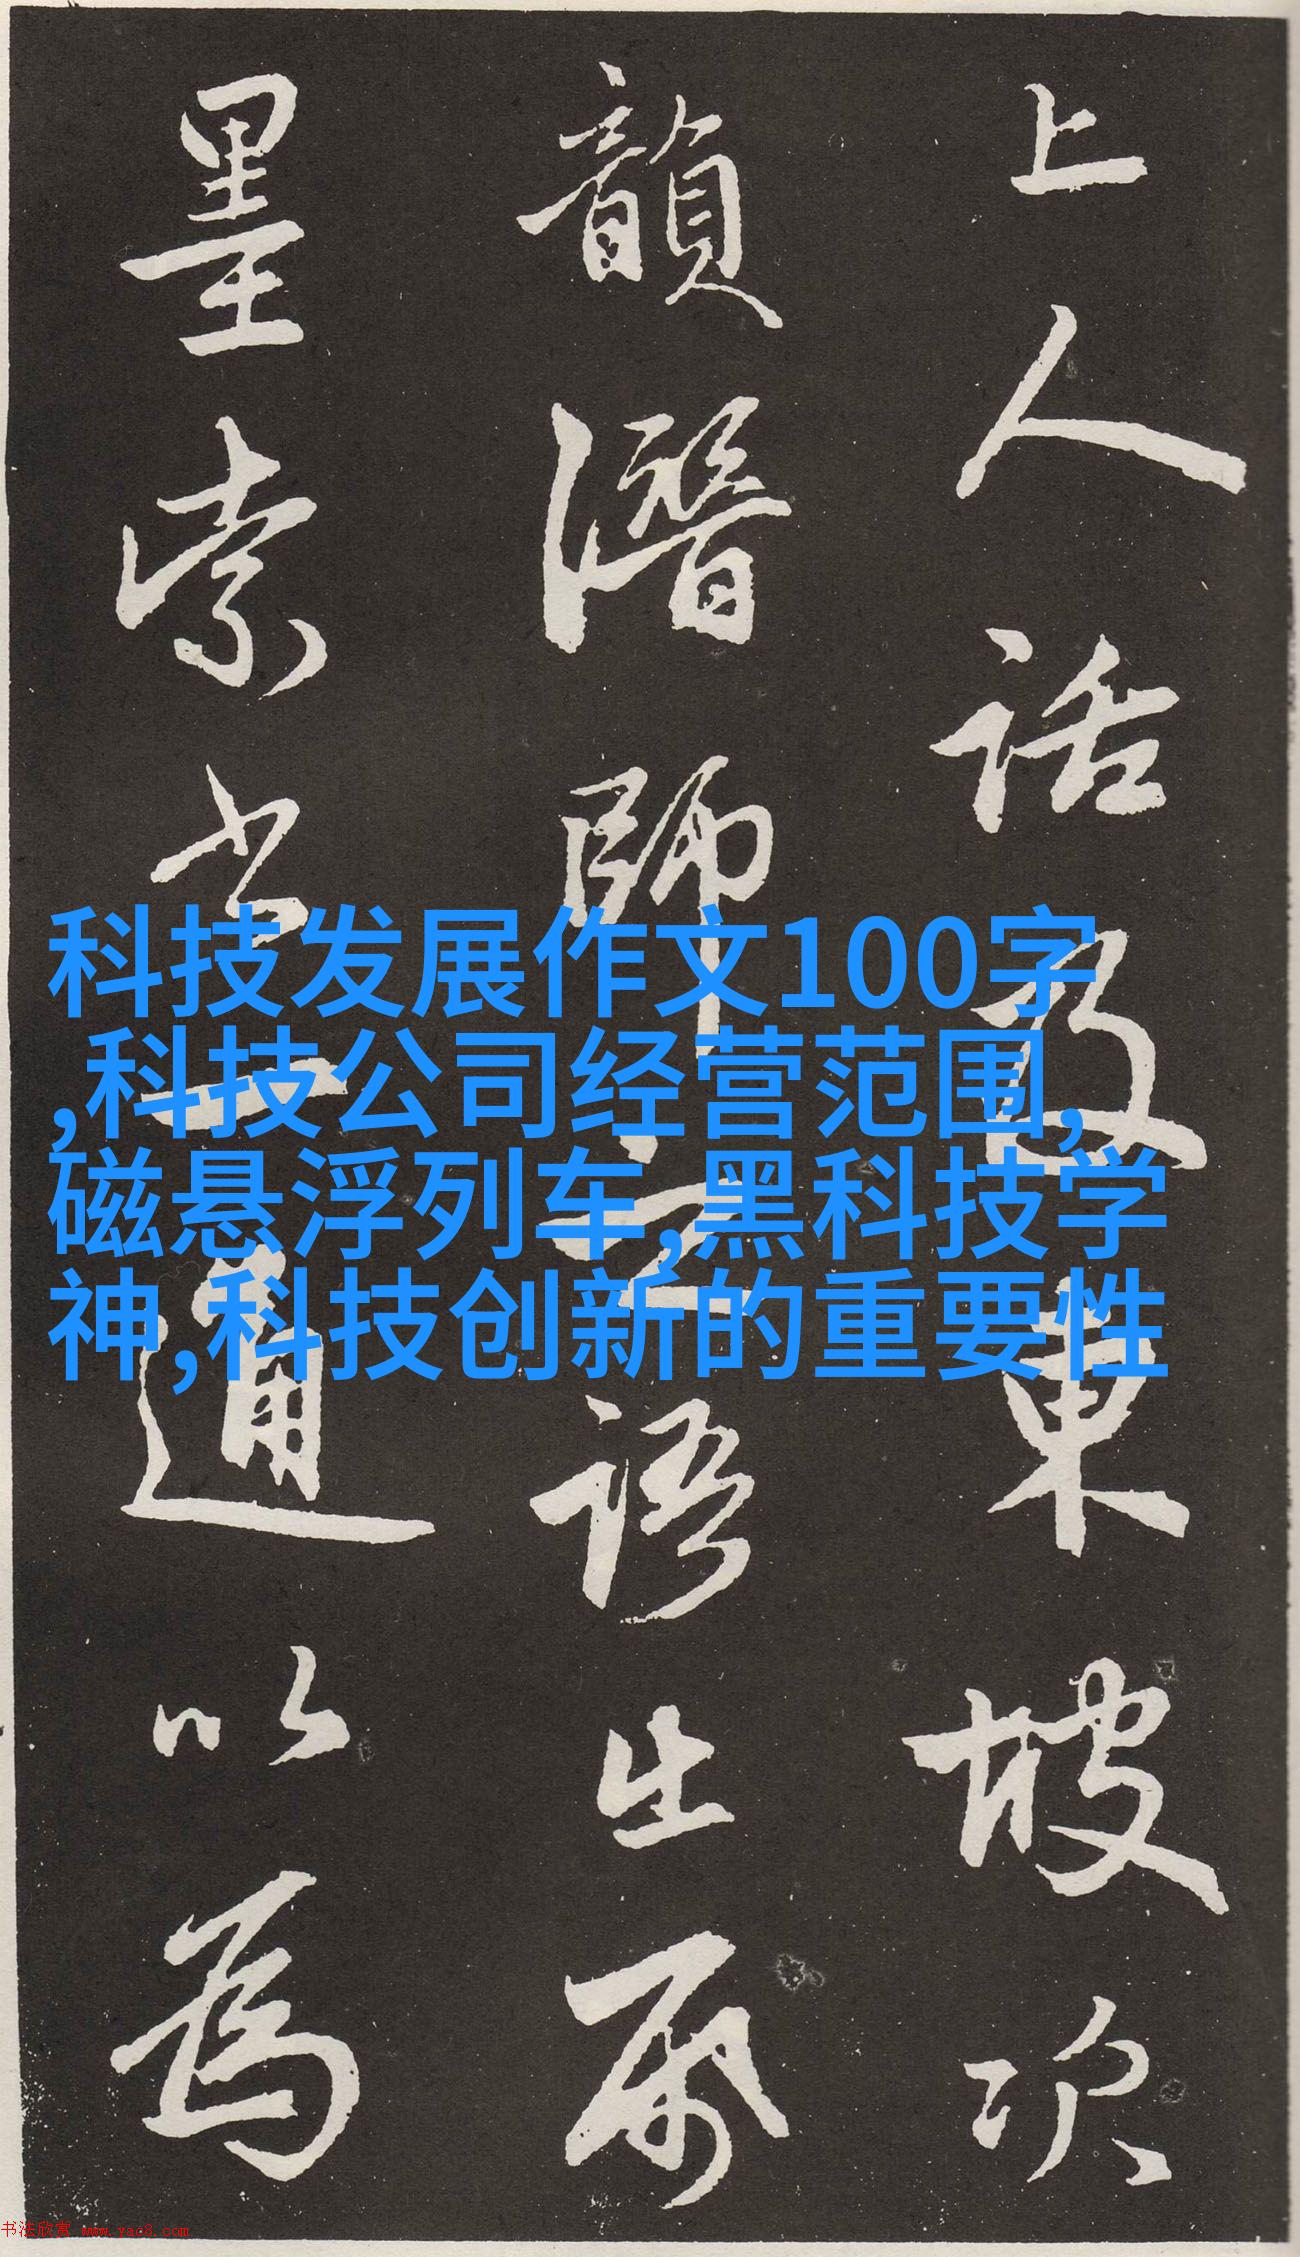 上人話及東坡次
韻潛師之語出
墨索書一通以為
科技发展作文100字
,科技公司经营范围,
磁悬浮列车,黑科技学
神,科技创新的重要性
书法欣赏 www.yac8.com